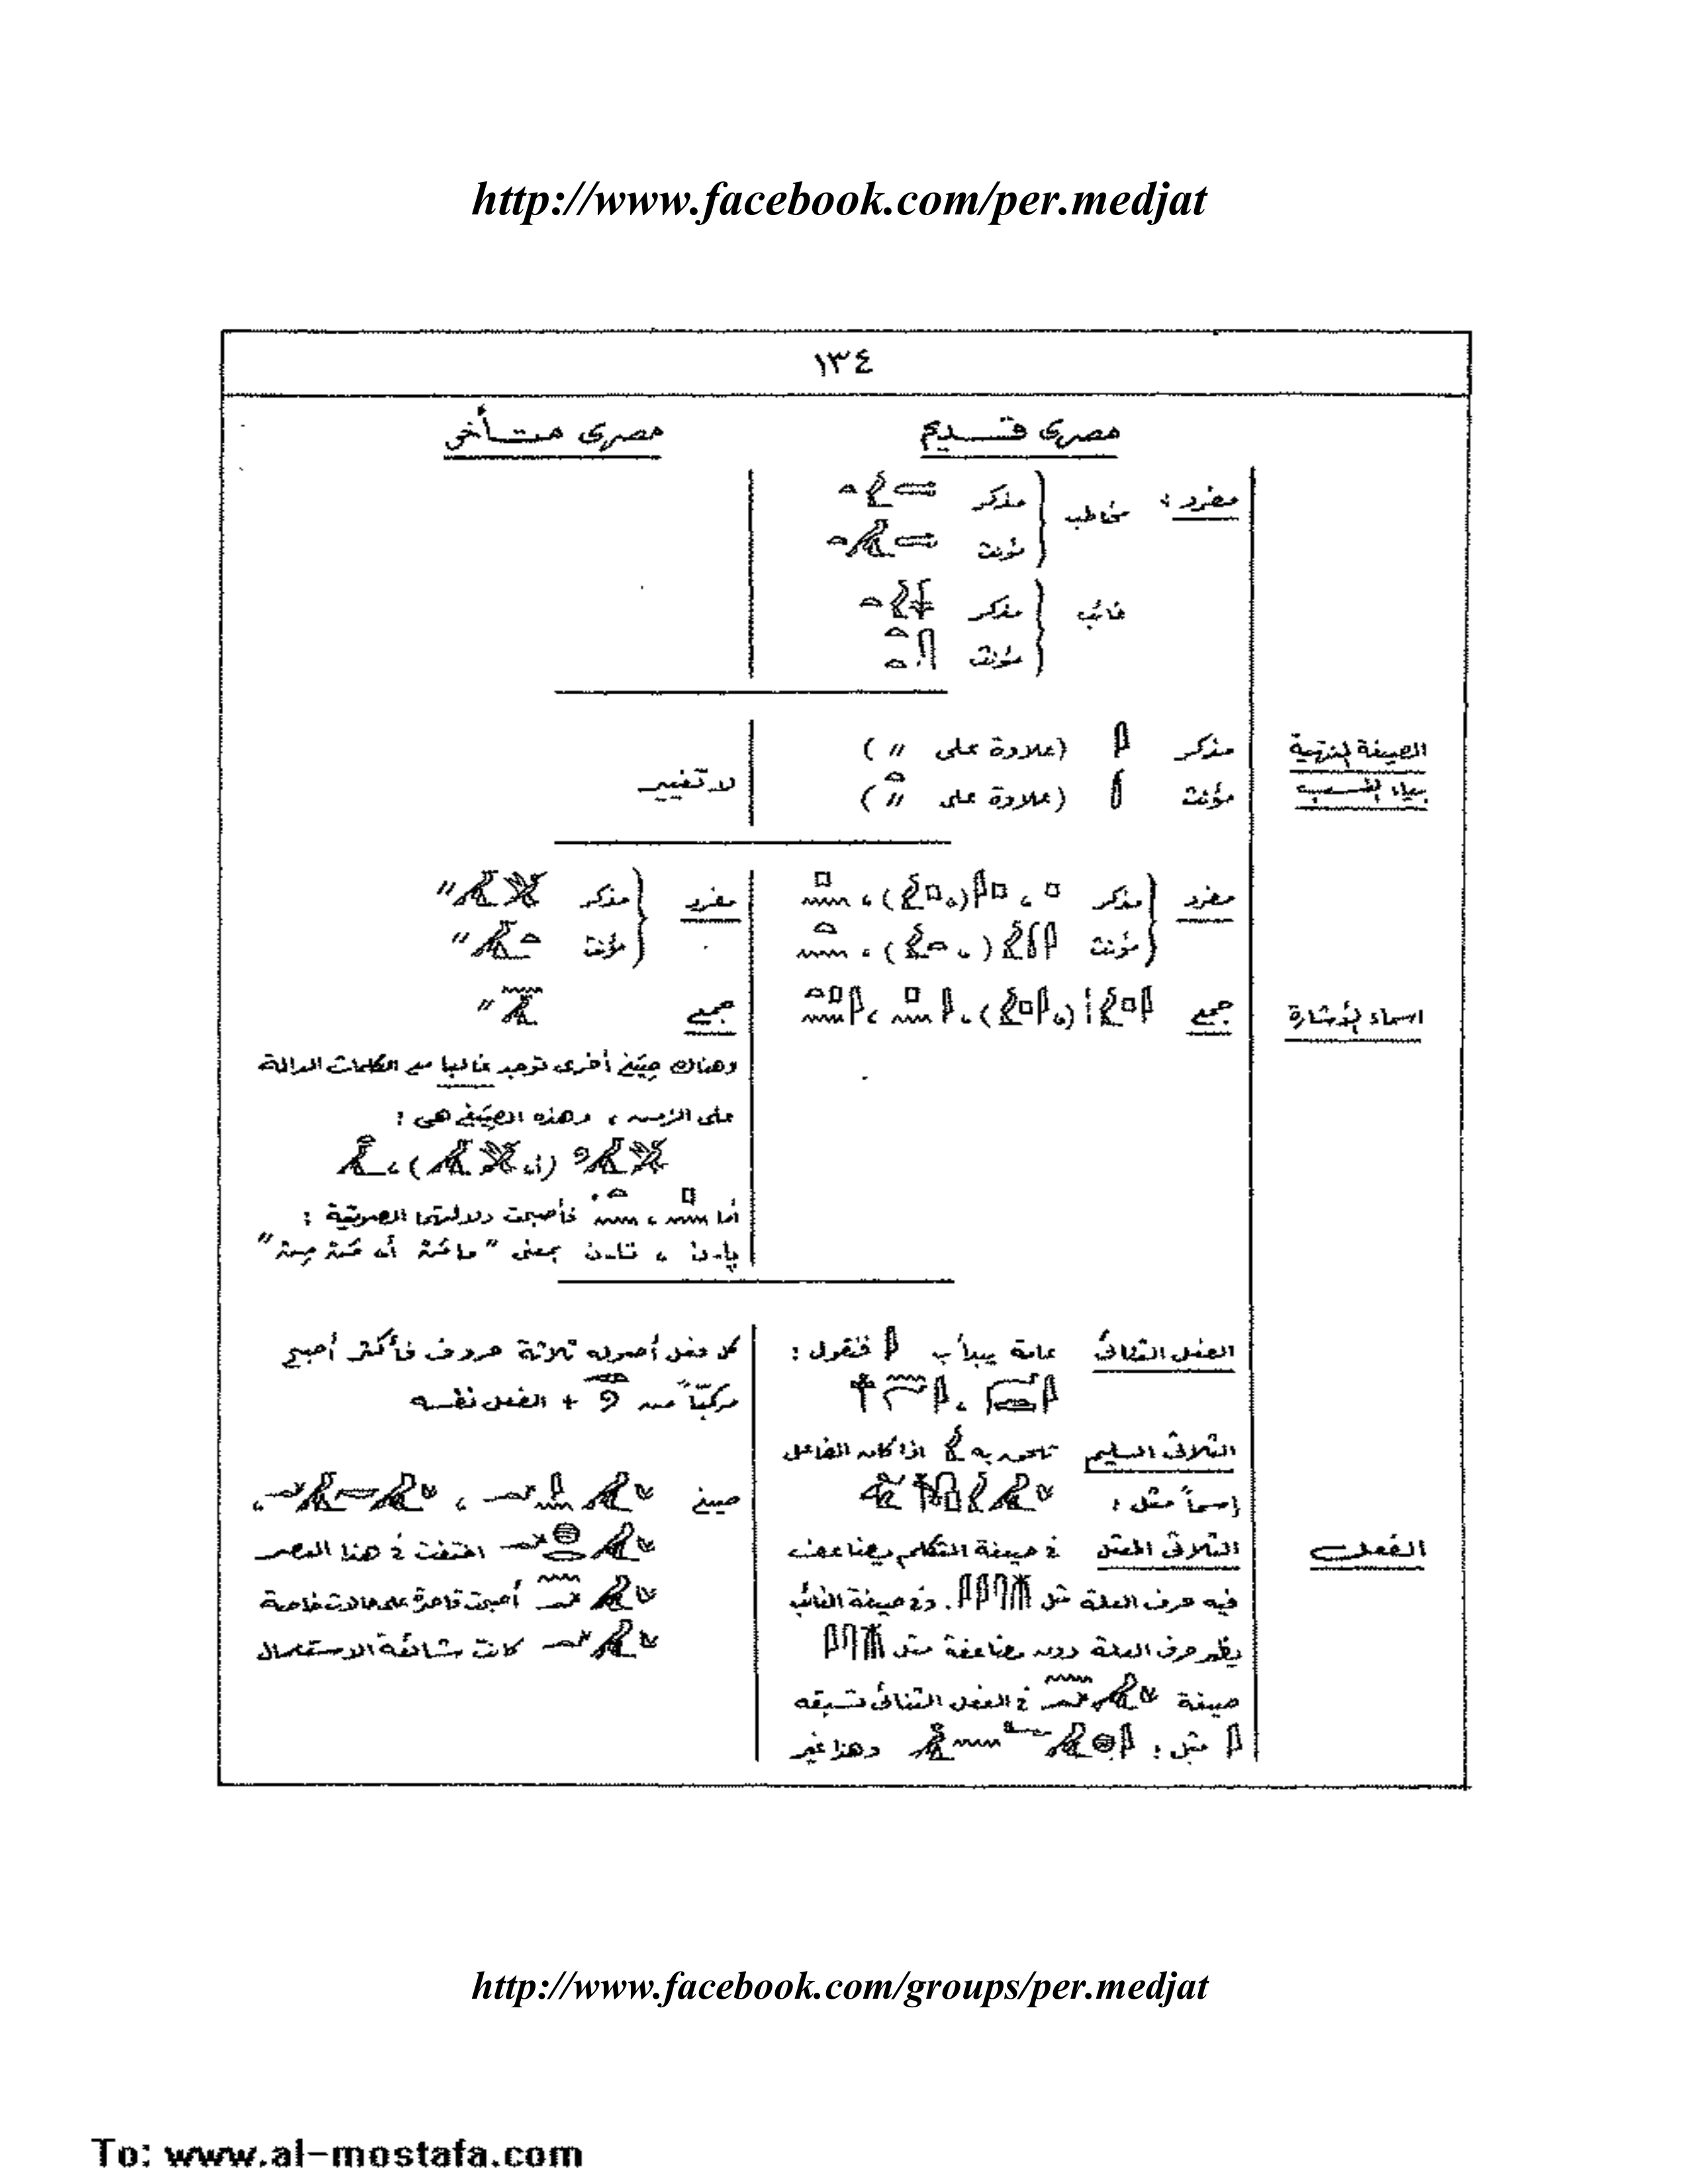 http://www.facebook.com/per.medjat
١٣٤
مصرى قديم
مصرى متأخر
مفرد : مخاطب مذكر
مؤنث
غائب مذكر
مؤنث
الصيغة المنتهية
بياء النسب
مذكر (علاوة على \\ )
مؤنث (علاوة على \\ )
لا تغيير
اسماء الأشارة
مفرد مذكر
مؤنث
جمع
مفرد مذكر
مؤنث
جمع
وهناك صيغ أخرى توجد غالبا مع الكلمات الدالة
على الزمن ، وهذه الصيغ هى :
أما ، فأصبحت دلالتها الصوتية :
پا.ن ، تا.ن بمعنى
الفعل
الفعل الثنائى عامة يبدأ ب فنقول :
الثلاثى السليم تلحق به اذا كان الفاعل
إسماً مثل :
الثلاثى المعتل فى صيغة المتكلم يضاعف
فيه حرف العلة مثل . وفى صيغة الغائب
يظهر حرف العلة دون مضاعفة مثل
صيغة فى الفعل الثنائى تسبقه
مثل : وهذا غير
كل فعل أصوله ثلاثة حروف فأكثر أصبح
مركبّاً من + الفعل نفسه
صيغ ،
اختفت فى هذا العصر
أصبحت قاصرة على حالات خاصة
كانت شائعة الاستعمال
http://www.facebook.com/groups/per.medjat
To: www.al-mostafa.com